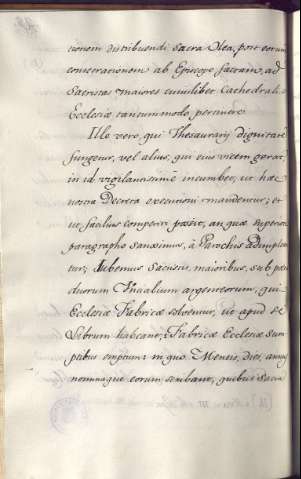 tionem distribuendi Sacra Olea, post eorum
consecrationem ab Episcopo Sacram, ad
Sacristas maiores cuiuslibet Cathedralis
Ecclesiæ tantummodo pertinere
Ille vero, qui Thesaurarij dignitate
fungetur, vel alius, qui eius vicem gerat,
in id vigilantissimè incumbet, ut hæc
nostra Decreta executioni mandentur; et
ut facilius comperiri possit, an quæ superiori
paragrapho sanximus, à Parochis adimplean
tur; Iubemus Sacristis maioribus, sub pœna
duorum Thaalium argenteorum, qui
Ecclesiæ Fabricæ solventur, ut apud se
Librum habeant, Fabricæ Ecclesiæ sum
ptibus emptum: in quo Mensis, dies, annus
nomenque eorum scribant, quibus Sacra